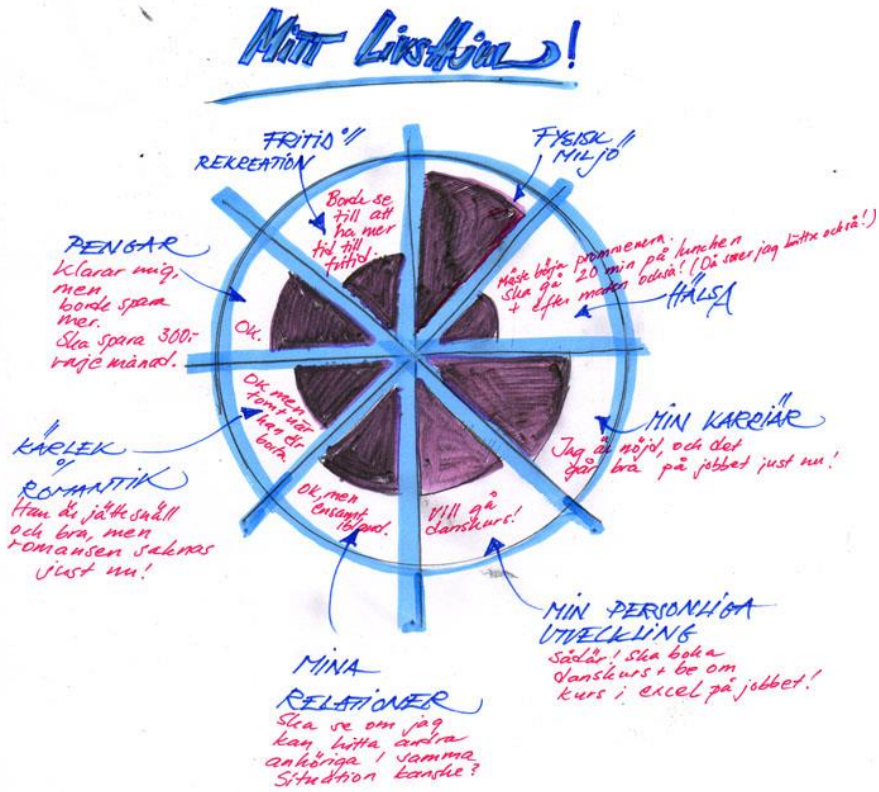 Mitt Livshjul!
FRITID &
REKREATION
Borde se
till att
ha mer
tid till
fritid.
FYSISK
MILJÖ
Måste börja prommenera.
Ska gå 20 min på lunchen
+ efter maten också! (Då sover jag bättre också!)
HÄLSA
PENGAR
Klarar mig,
men
borde spara
mer.
Ska spara 300:-
varje månad.
OK.
MIN KARRIÄR
Jag är nöjd, och det
går bra på jobbet just nu!
KÄRLEK
&
ROMANTIK
Han är jättesnäll
och bra, men
romansen saknas
just nu!
OK men
tomt när
han är
borta.
OK, men
ensamt
ibland.
Vill gå
danskurs!
MIN PERSONLIGA
UTVECKLING
sådär! ska boka
danskurs + be om
kurs i excel på jobbet!
MINA
RELATIONER
Ska se om jag
kan hitta andra
anhöriga i samma
situation kanske?